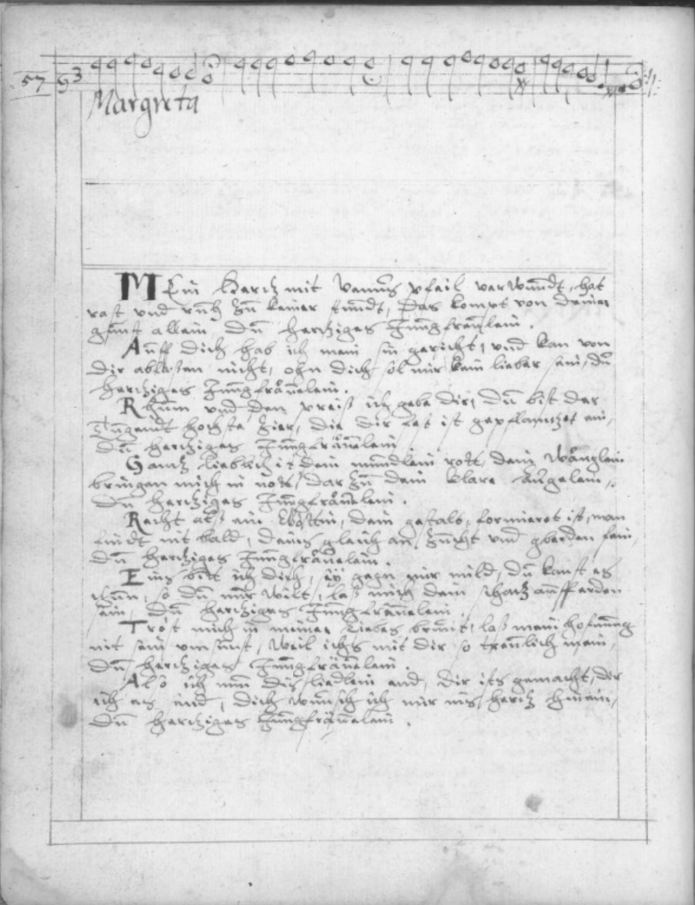 57 63
Margreta
MEin Hertz mit Venus pfeil verwundt, hat
rast und ruh zu keiner stundt, Das kompt von deiner
gunst allein, du hertziges Jungfräuelein.
Auff dich hab ich mein gericht, und kan von
dir ablassen nicht, ohn dich sol mir kein lieber sein, du
hertziges Jungfräuelein.
Rhum und den preiß ich gebe dir, du bist der
Tugendt hochste zier, die dir Got ist gepflantzet ein,
du hertziges Jungfräuelein.
Gantz lieblich ist dein mundlein rott, dein wänglein
bringen mich in nott, darzu dein klare äugelein,
du hertziges Jungfräuelein.
Recht alß ein Göttin, dein gestalt, formieret ist, man
findt nit bald, deins gleich an, zucht und geberden fein,
du hertziges Jungfräuelein.
Eins bitt ich dich, sey gegn mir mild, du kanst es
thun, so du nur wilt, laß mich dein schatz auff erden
sein, du hertziges Jungfräuelein.
Tröst mich in meiner Liebes brunst, laß mein hofnung
nit sein umsunst, weil ichs mit dir so treulich mein,
du hertziges Jungfräuelein.
Also ich nun diß liedlein end, dir ists gemacht, der
ich es send, dich wunsch ich mir ins hertz hinein,
du hertziges Jungfräuelein.